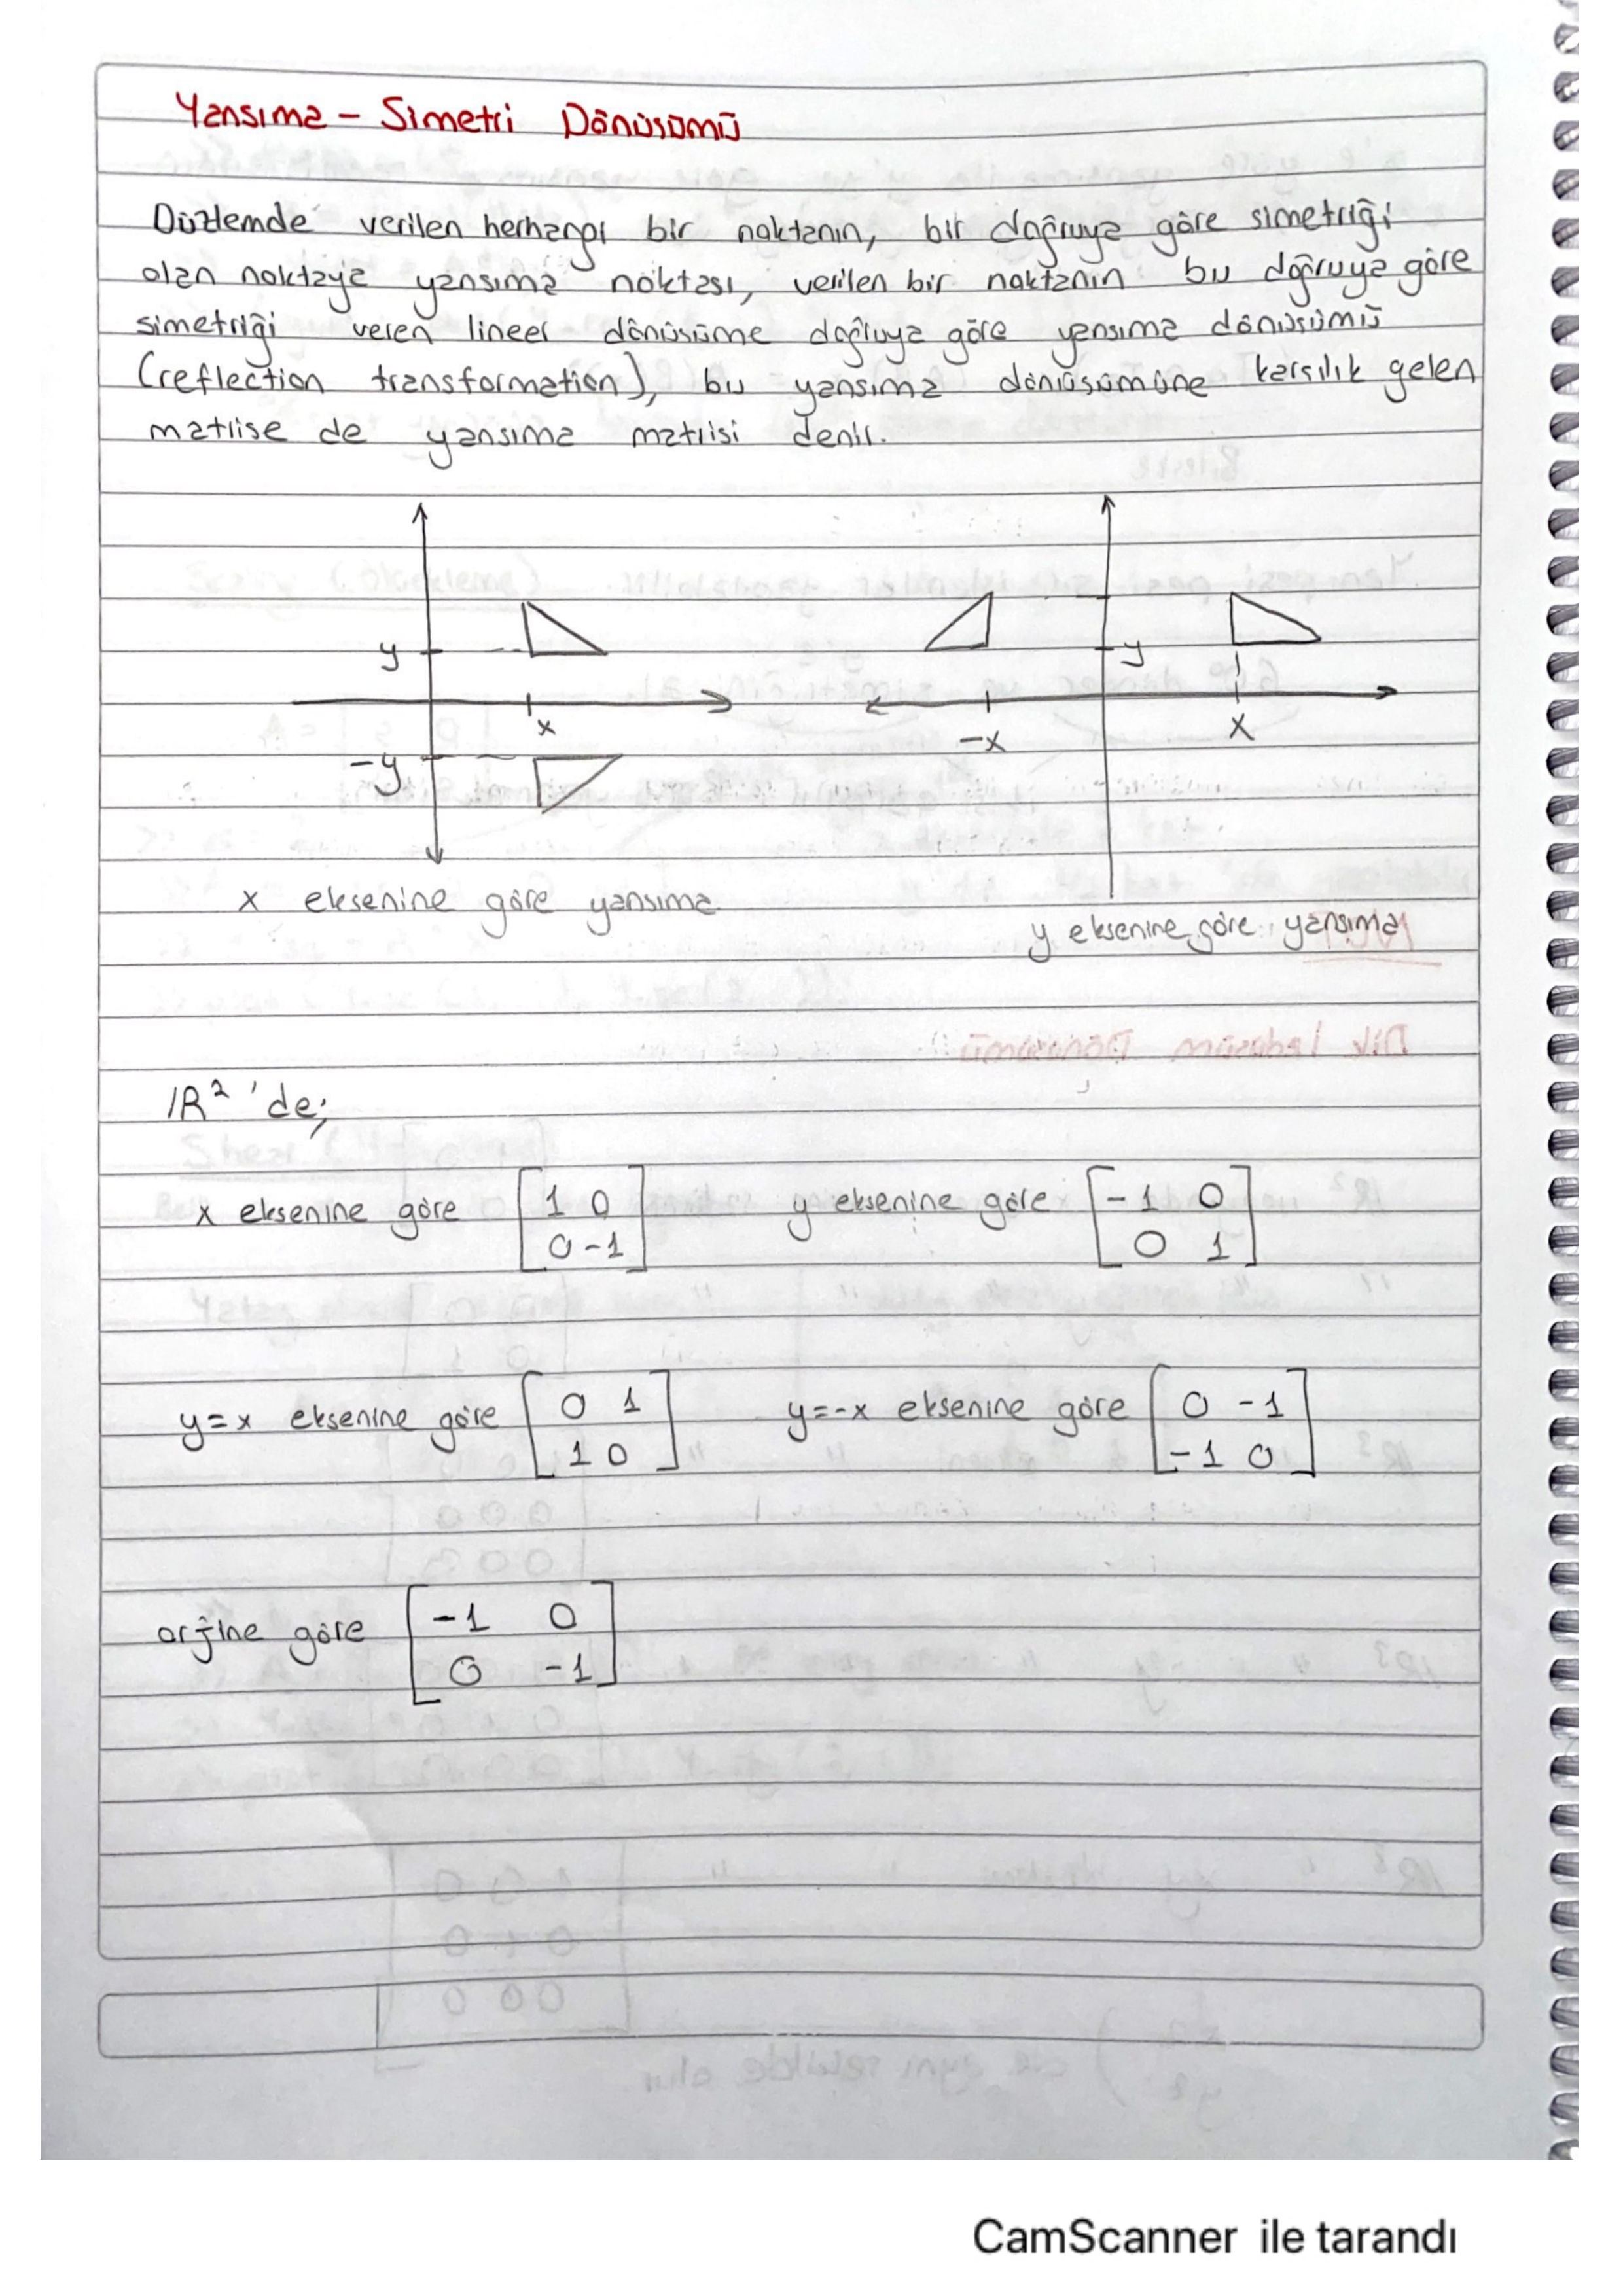 Yansıma - Simetri Dönüsümü
Düzlemde verilen herhangi bir noktanın, bir doğruya göre simetriği
olan noktaya yansıma noktası, verilen bir noktanın bu doğruya göre
simetriği veren lineer dönüsüme doğruya göre yansıma dönüsümü
(reflection transformation), bu yansıma dönüsümüne karsılık gelen
matrise de yansıma matrisi denir.
y
x
-y
x eksenine göre yansıma
y
-x
x
y eksenine göre yansıma
IR² 'de;
x eksenine göre [1 0
0 -1]
y eksenine göre [-1 0
0 1]
y=x eksenine göre [0 1
1 0]
y=-x eksenine göre [0 -1
-1 0]
orjine göre [-1 0
0 -1]
CamScanner ile tarandı